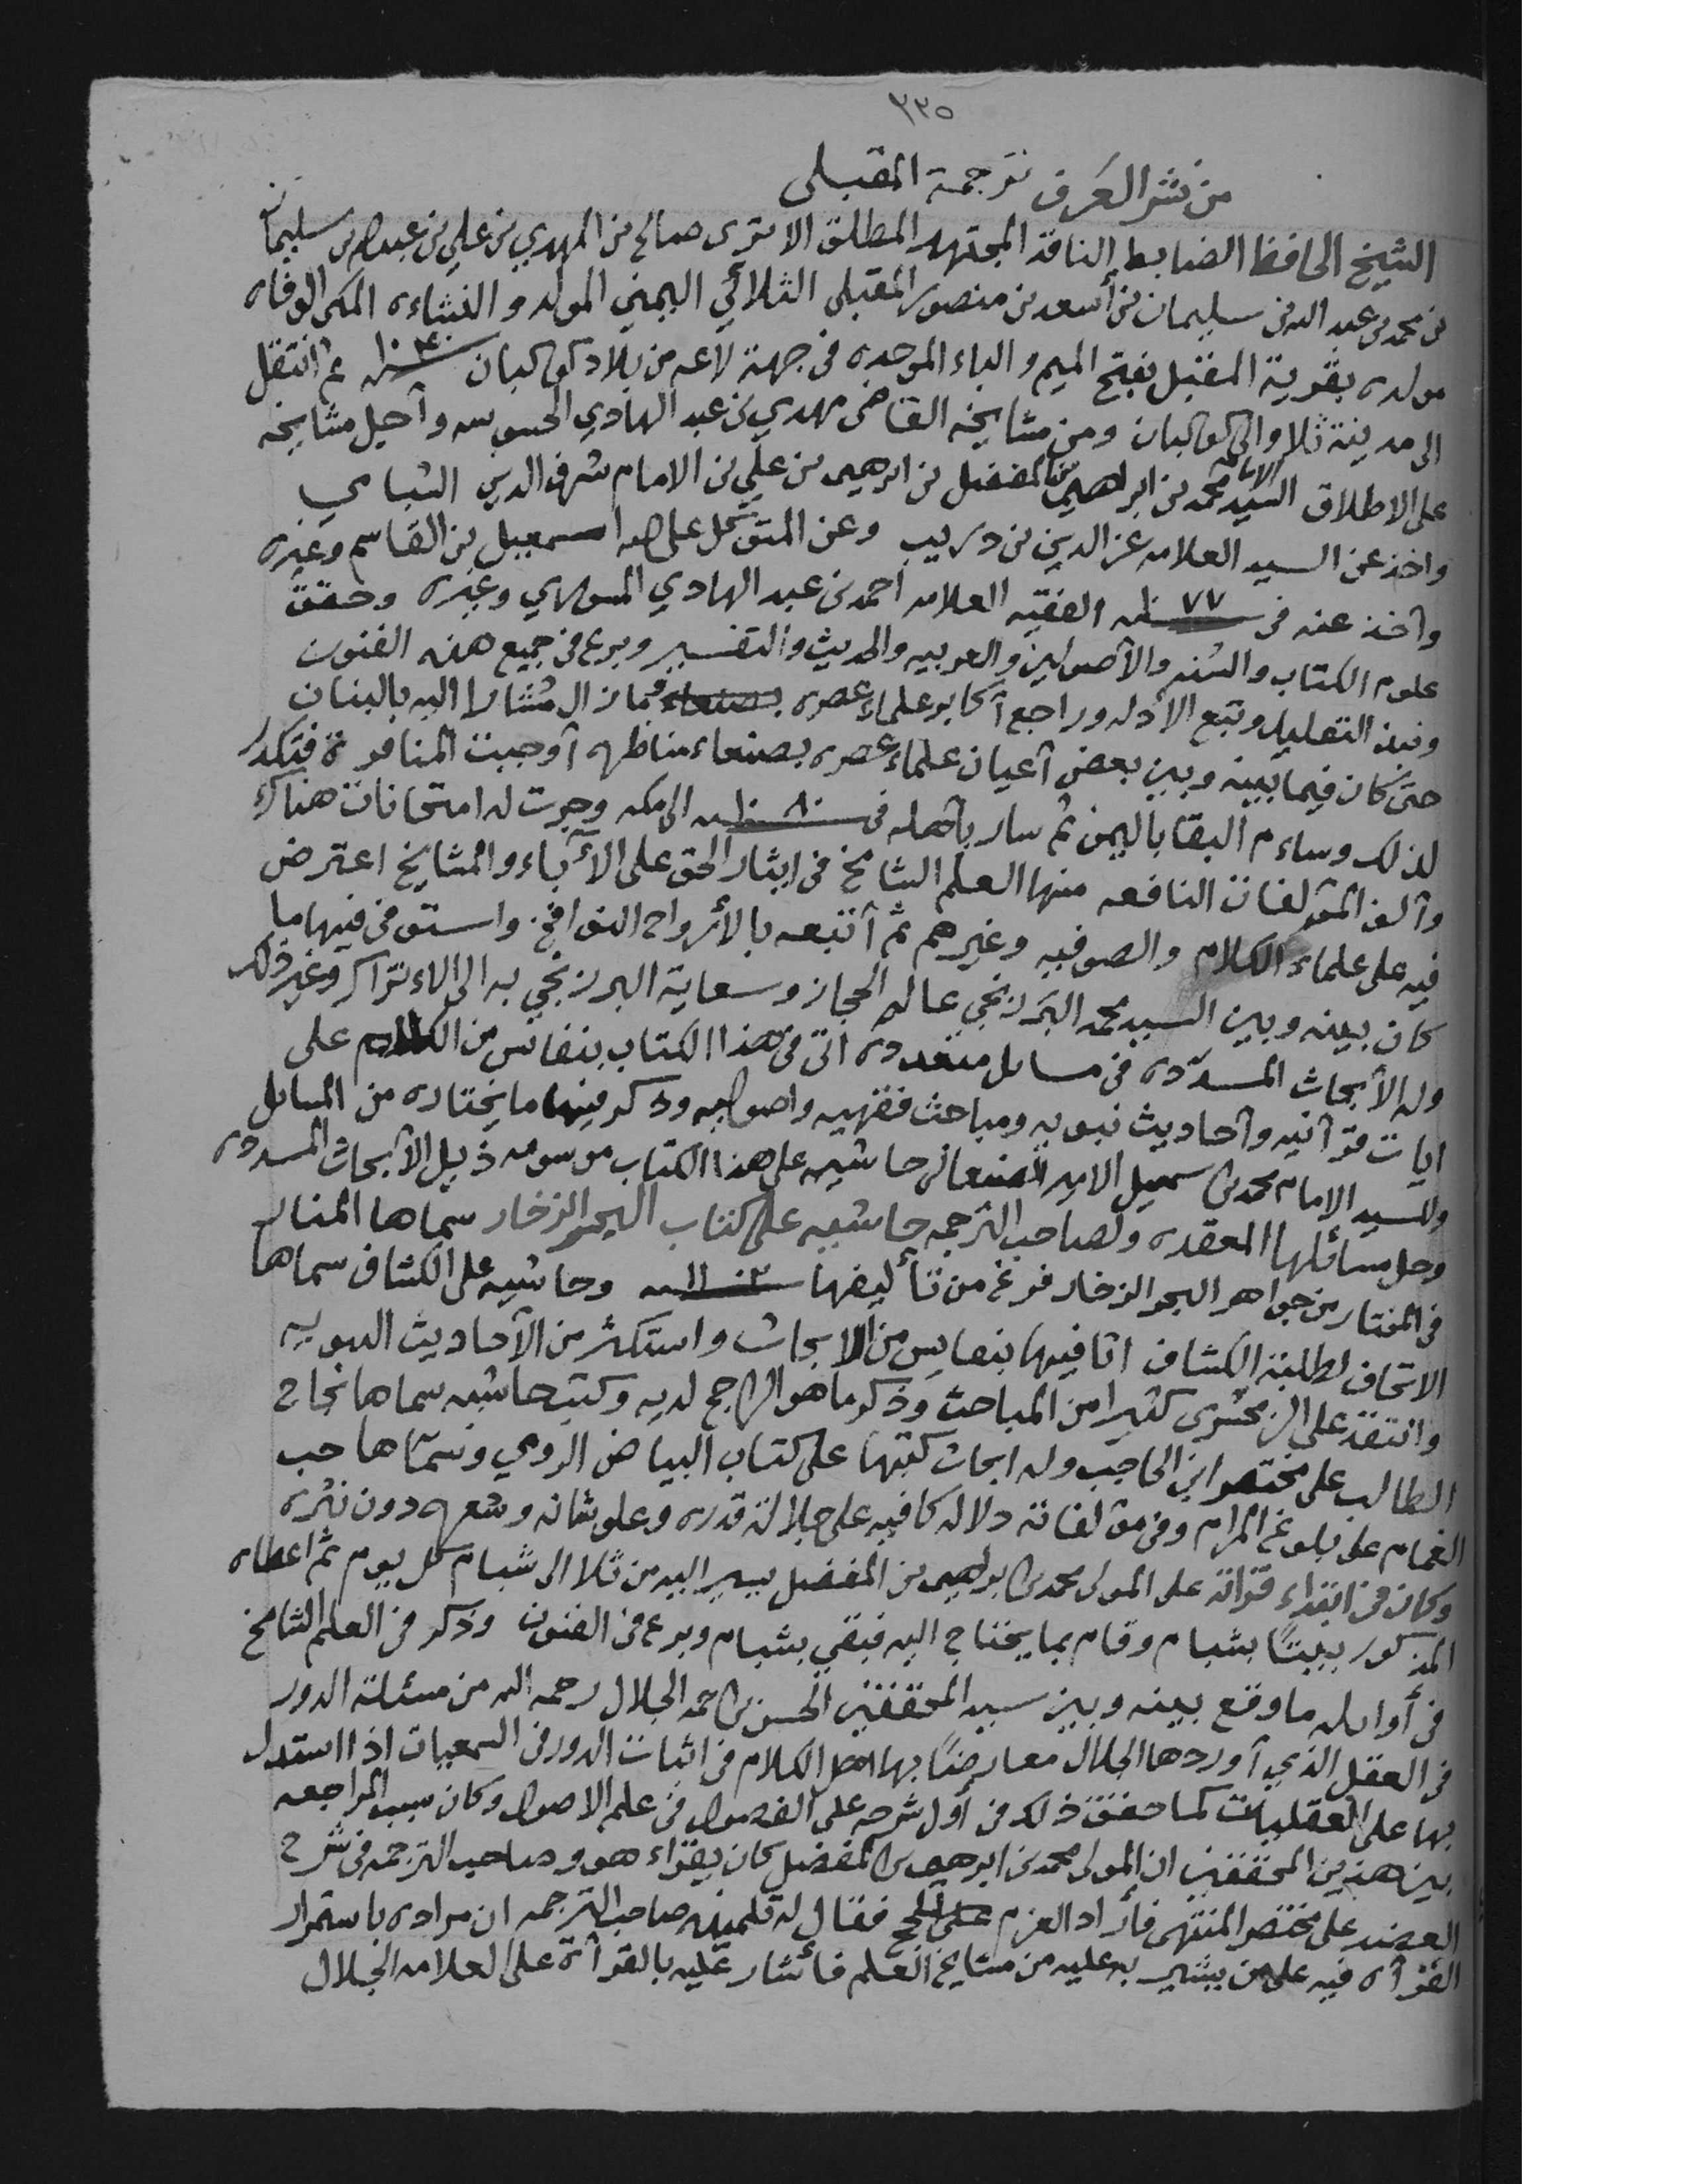 ٣٣٥
من نشر العَرف ترجمة المقبلى
الشيخ الحافظ الضابط الناقد المجتهد المطلق الاثرى صالح بن المهدي بن علي بن عبدالله بن سليمان
بن محمد بن عبد الله بن سليمان بن أسعد بن منصور المقبلى الثلائي اليمني المولد والنشاءه المكى الوفاه
مولده بقرية المقبل بفتح الميم والباء الموحده فى جهة لاعه من بلاد كوكبان ١٠٤٠ ثم انتقل
الى مدينة ثلا والى كوكبان ومن مشايخه القاضى مهدي بن عبد الهادي الحسوسه وأجل مشايخه
على الاطلاق السيد الامام محمد بن ابراهيم بن المفضل بن ابرهيم بن علي بن الامام شرف الدين الشبامي
واخذ عن السيد العلامه عز الدين بن دريب وعن المتوكل على الله اسمعيل بن القاسم وغيره
وأخذ عنه فى ١٠٧٧ الفقيه العلامه أحمد بن عبد الهادي المسوري وغيره وحقق
علوم الكتاب والسُنه والأصولين والعربيه والحديث والتفسير وبرع فى جميع هذه الفنون
ونبذ التقليد وتتبع الأدله وراجع أكابر علماء عصره بصنعاء فما زال مشارا اليه بالبنان
حتى كان فيما بينه وبين بعض أعيان علماء عصره بصنعاء مناظره أوجبت المنافرة فتكدر
لذلك وساءم البقا باليمن ثم سار بأهله فى ١٠٨٠ الى مكه وجرت له امتحانات هناك
وألف المؤلفات النافعه منها العلم الشامخ فى ايثار الحق على الأباء والمشايخ اعترض
فيه على علماء الكلام والصوفيه وغيرهم ثم أتبعه بالأرواح النوافخ واستوفى فيها ما
كان بينه وبين السيد محمد البَرزنجي عالم الحجاز وسعاية البرزنجي به الى الاتراك وغير ذلك
وله الأبحاث المسدّده فى مسائل متعدده اتى فى هذا الكتاب بنفائس من الكلام على
ايات قرآنيه وأحاديث نبويه ومباحث فقهيه واصوليه وذكر فيها ما يختاره من المسائل
وللسيد الامام محمد بن اسمعيل الامير الصنعانى حاشيه على هذا الكتاب موسومه ذيل الأبحاث المسدده
وحل مسائلها المعقده ولصاحب الترجمه حاشيه على كتاب البحر الزخار سماها المنار
فى المختار من جواهر البحر الزخار فرغ من تأليفها ١١٠٣ وحاشيه على الكشاف سماها
الاتحاف لطلبة الكشاف اتا فيها بنفايس من الابحاث واستكثر من الأحاديث النبويه
وانتقد على الزمخشرى كثيرا من المباحث وذكر ما هو الراجح لديه وكتب حاشيه سماها نجاح
الطالب على مختصر ابن الحاجب وله ابحاث كتبها على كتاب البياض الرومي وسمّاها حب
الغمام على بلوغ المرام وفى مؤلفاته دلاله كافيه على جلالة قدره وعلو شانه وشعره دون نثره
وكان فى ابتداء قرائة على المولى محمد بن ابرهيم بن المفضل يسير اليه من ثلا الى شبام كل يوم ثم اعطاه
المذكور بيتًا بشبام وقام بما يحتاج اليه فبقي بشبام وبرع فى الفنون وذكر فى العلم الشامخ
فى أوايله ما وقع بينه وبين سيد المحققين الحسن بن احمد الجلال رحمه الله من مسئلة الدور
فى العقل الذي أوردها الجلال معارضًا بها اهل الكلام فى اثبات الدور فى السمعيات اذا استدل
بها على العقليات كما حقق ذلك فى أول شرحه على الفصول فى علم الاصول وكان سبب المراجعه
بين هذين المحققين ان المولى محمد بن ابرهيم بن المفضل كان يقراء هو وصاحب الترجمه فى شرح
العضد على مختصر المنتهى فأراد العزم على الحج فقال له تلميذه صاحب الترجمه ان مراده باستمرار
القرآه فيه على من يشير به عليه من مشايخ العلم فأشار عليه بالقرآة على العلامه الجلال